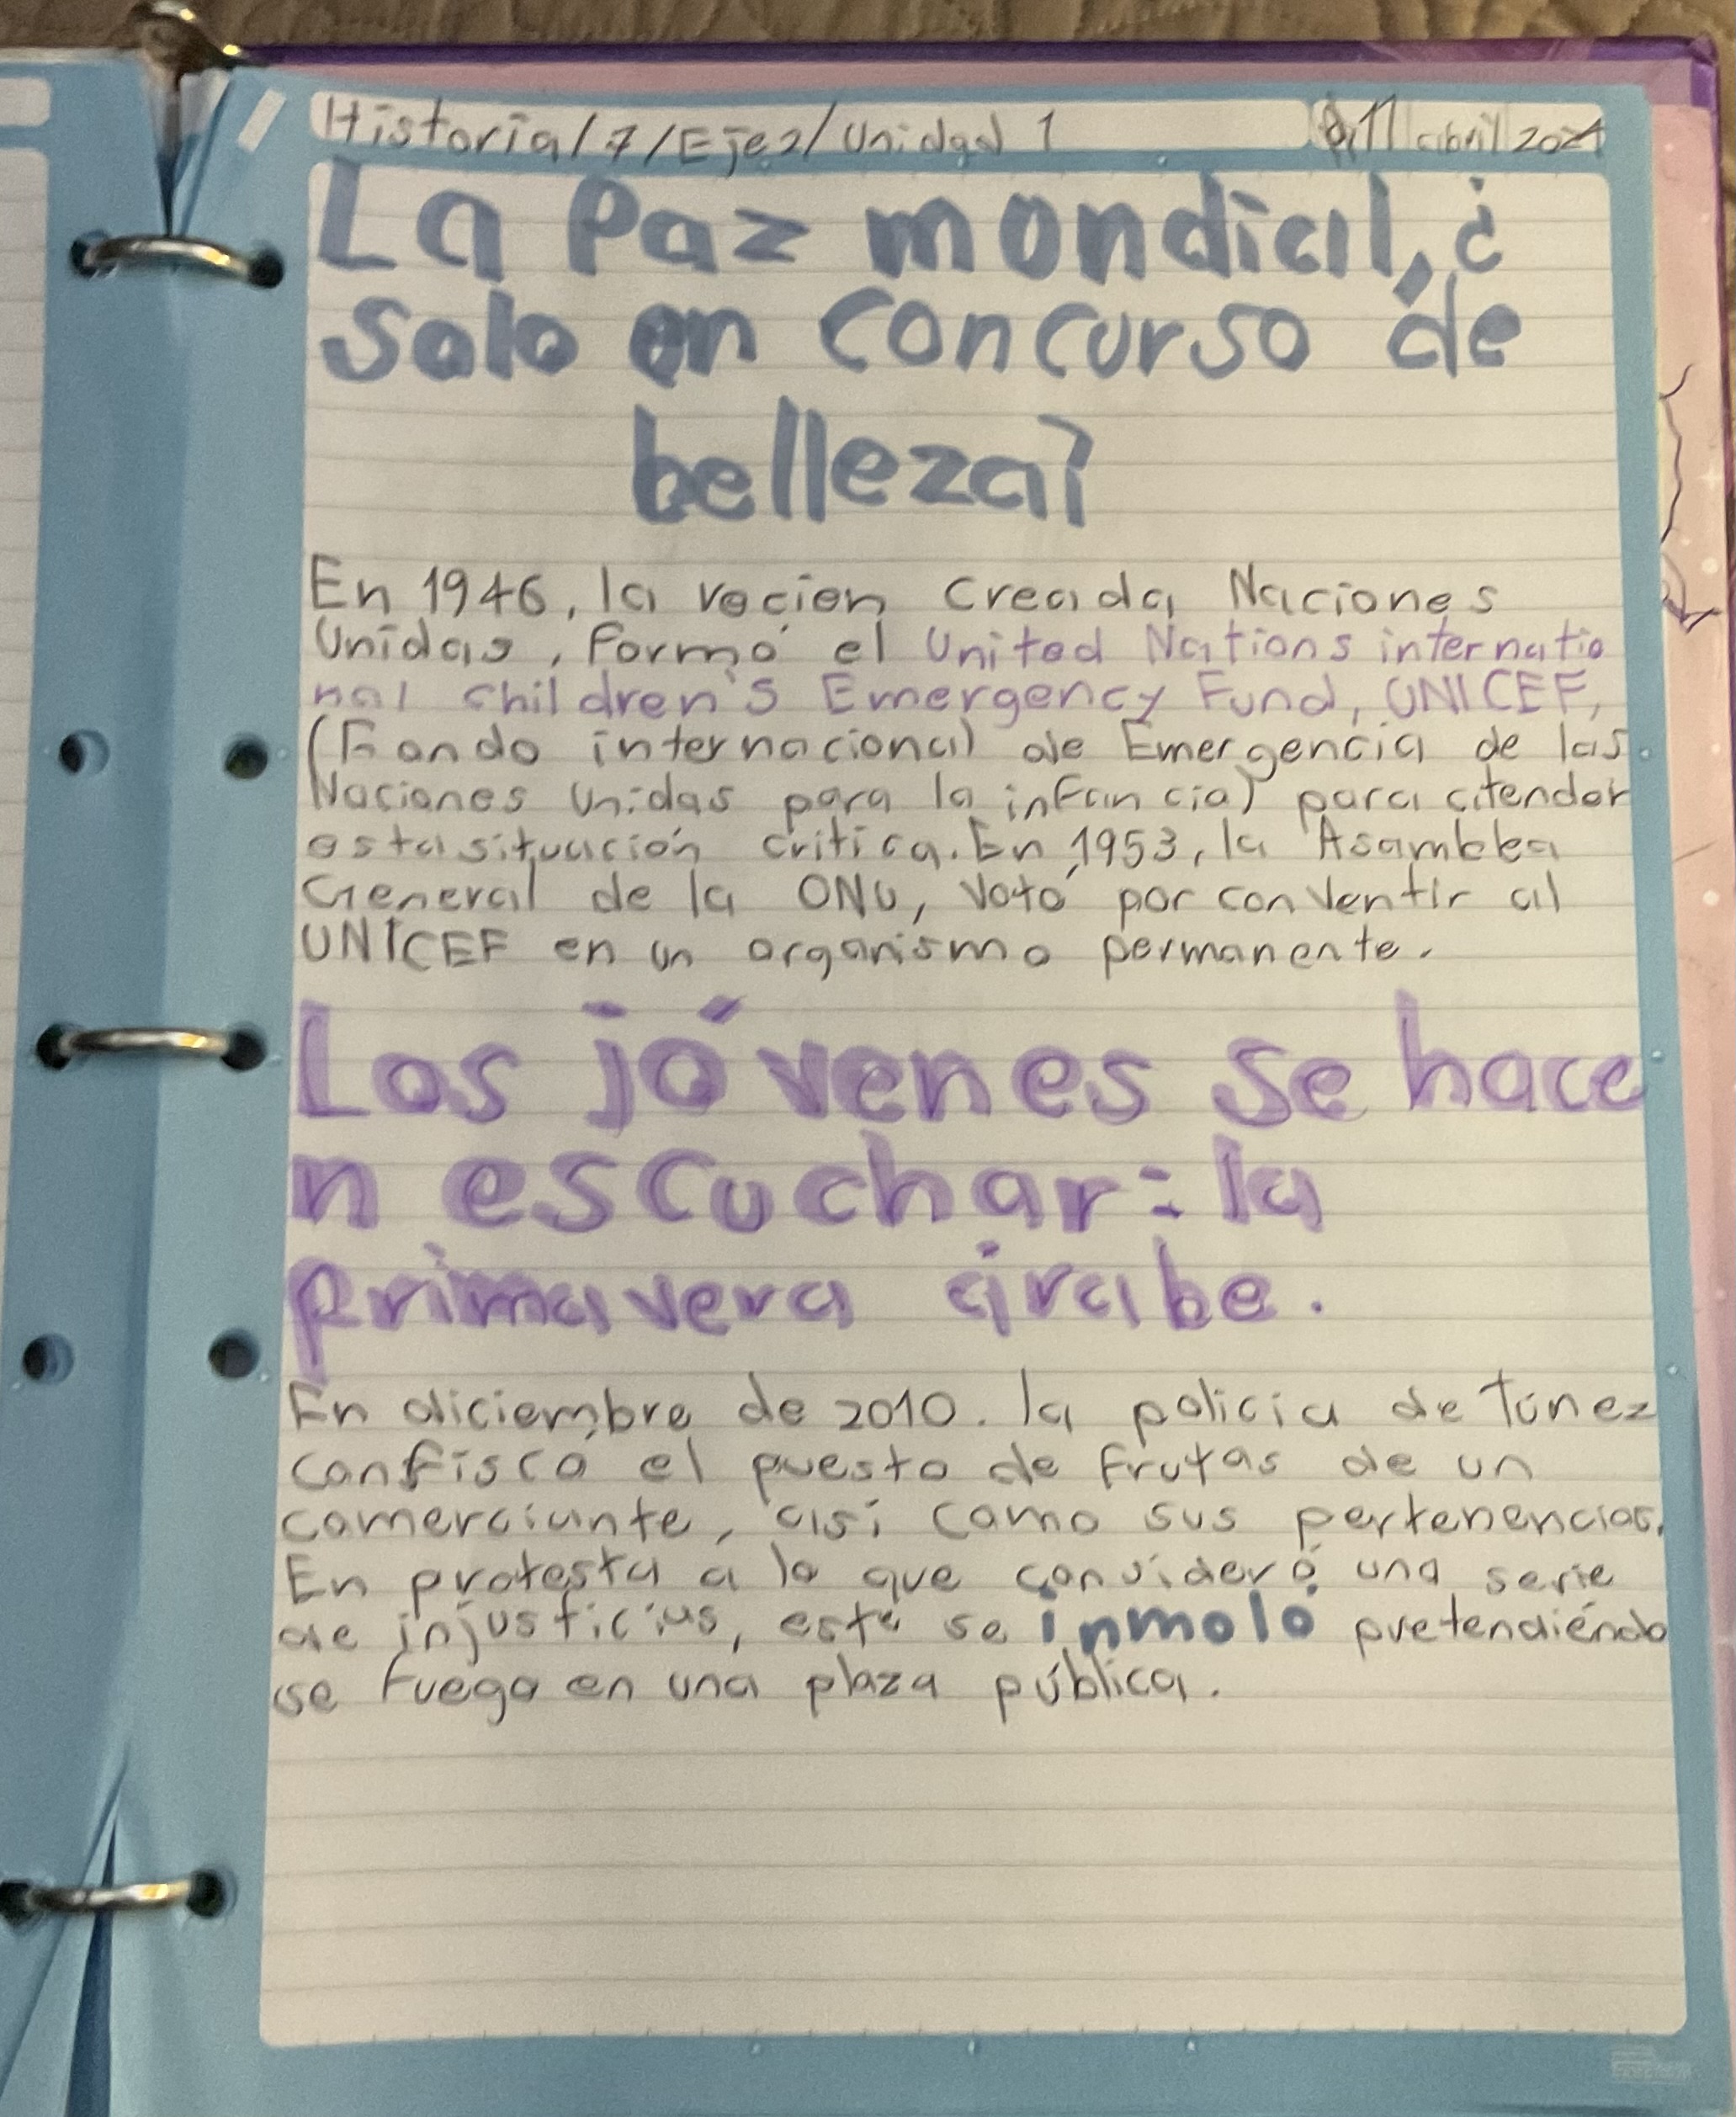 Historia/7/Eje2/Unidad 1
11 abril 2024
La Paz mondial, ¿
solo en concurso de
belleza?
En 1946, la recien creada Naciones
Unidas, formó el United Nations internatio
nal children's Emergency Fund, UNICEF,
(Fondo internacional de Emergencia de las
Naciones Unidas para la infancia) para atender
esta situación critica. En 1953, la Asamblea
General de la ONU, votó por conventir al
UNICEF en un organismo permanente.
Los jóvenes se hace
n escuchar: la
primavera árabe.
En diciembre de 2010. la policia de Túnez
confiscó el puesto de frutas de un
comerciante, así como sus pertenencias.
En protesta a lo que consideró una serie
de injusticias, esté se inmoló pretendiéndo
se fuego en una plaza pública.